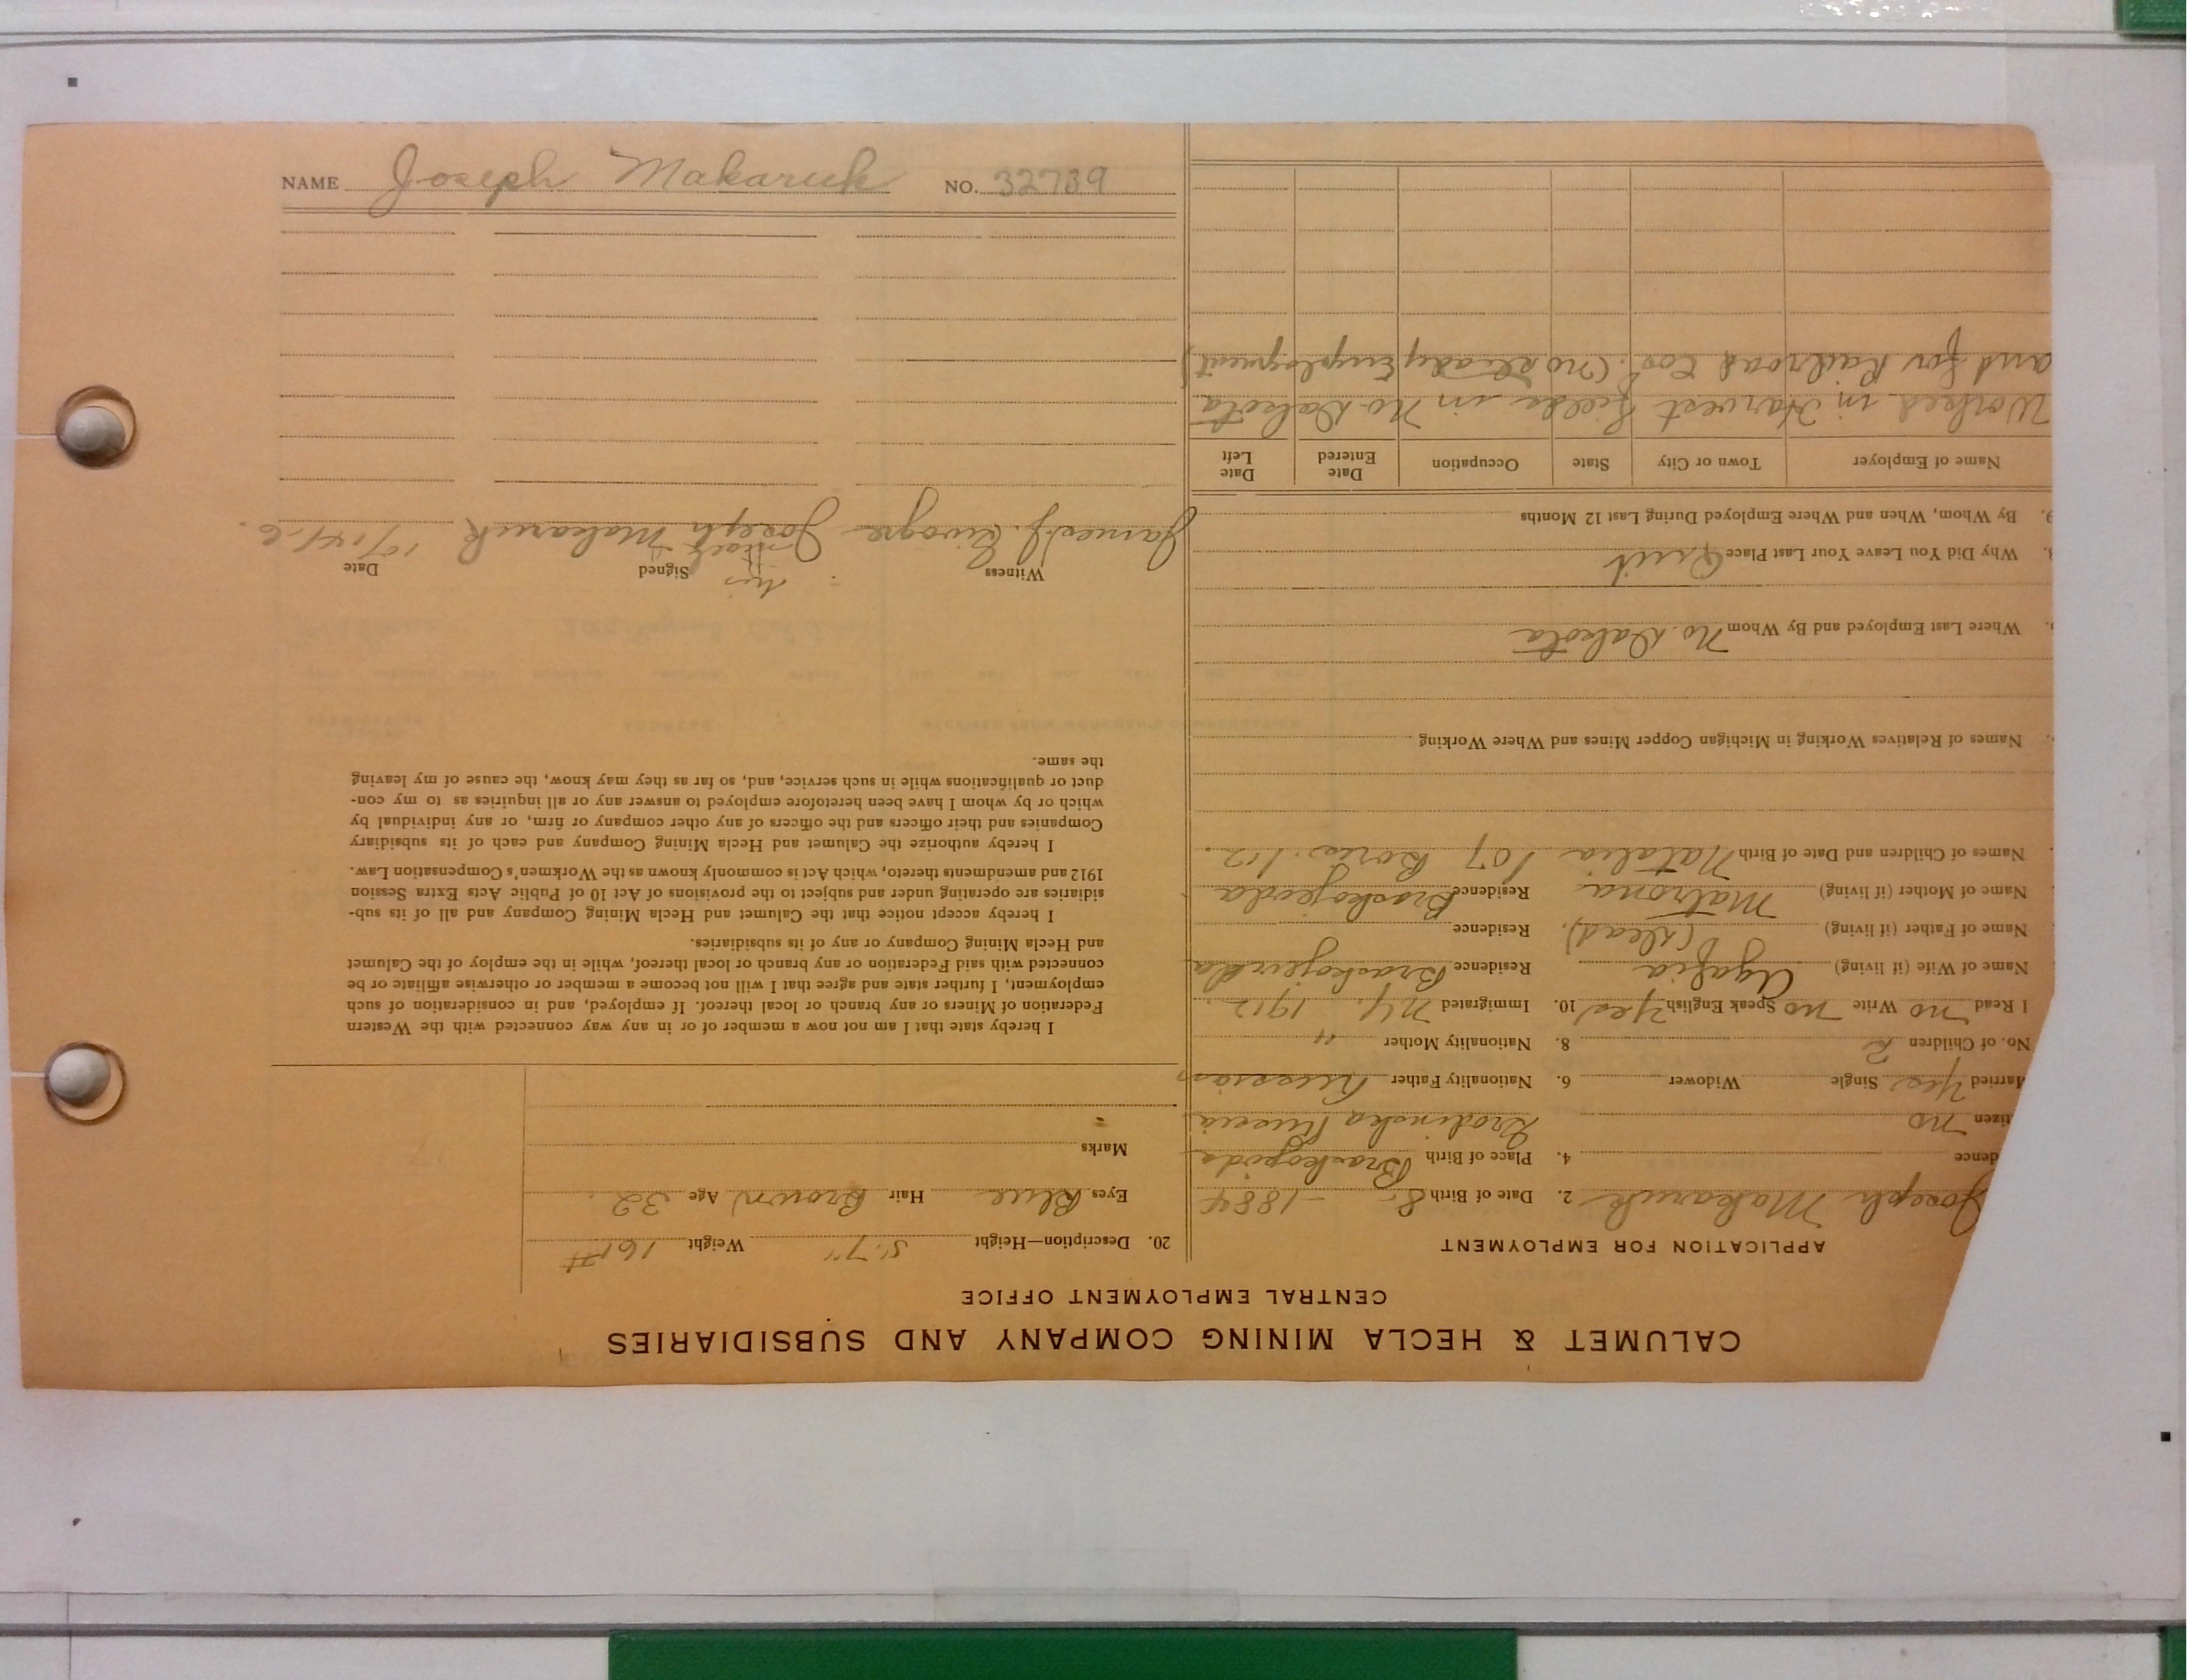 CALUMET & HECLA MINING COMPANY AND SUBSIDIARIES
CENTRAL EMPLOYMENT OFFICE
APPLICATION FOR EMPLOYMENT
Joseph Makaruk 2. Date of Birth 8 - - 1884
dence 4. Place of Birth
Grodinska Russia
tizen no
Married Yes Single Widower 6. Nationality Father Russian
No. of Children 2 8. Nationality Mother "
I Read no Write no Speak English Yes 10. Immigrated N.Y. 1912.
Name of Wife (if living) Agafia Residence
Name of Father (if living) (dead). Residence
Name of Mother (if living) Matrona Residence
Names of Children and Date of Birth Natalia 1/07 Boris. 1/12.
Names of Relatives Working in Michigan Copper Mines and Where Working
Where Last Employed and By Whom No. Dakota
Why Did You Leave Your Last Place Quit
9. By Whom, When and Where Employed During Last 12 Months
Name of Employer Town or City State Occupation Date Entered Date Left
Worked in Harvest fields in No Dakota
and for Railroad Cos. (no steady Employment)
20. Description—Height 5'.7" Weight 161#
Eyes Blue Hair Brown Age 32.
Marks
I hereby state that I am not now a member of or in any way connected with the Western
Federation of Miners or any branch or local thereof. If employed, and in consideration of such
employment, I further state and agree that I will not become a member or otherwise affiliate or be
connected with said Federation or any branch or local thereof, while in the employ of the Calumet
and Hecla Mining Company or any of its subsidiaries.
I hereby accept notice that the Calumet and Hecla Mining Company and all of its sub-
sidiaries are operating under and subject to the provisions of Act 10 of Public Acts Extra Session
1912 and amendments thereto, which Act is commonly known as the Workmen's Compensation Law.
I hereby authorize the Calumet and Hecla Mining Company and each of its subsidiary
Companies and their officers and the officers of any other company or firm, or any individual by
which or by whom I have been heretofore employed to answer any or all inquiries as to my con-
duct or qualifications while in such service, and, so far as they may know, the cause of my leaving
the same.
Witness Signed Date
his
James J. Joseph Makaruk
mark
NAME Joseph Makaruk NO. 32739